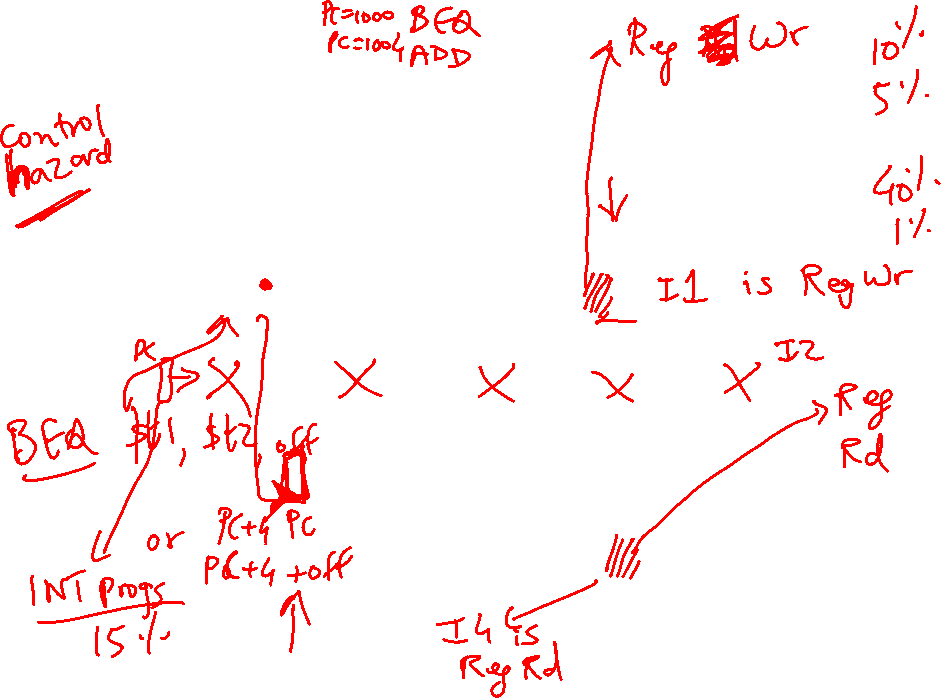 PC=1000 BEQ
PC=1004 ADD
Reg Wr
10%
5%
40%
1%
Control
hazard
I1 is Reg Wr
PC
I2
BEQ $t1, $t2
off
Reg
Rd
or PC+4 PC
PC+4 +off
INT Progs
15%
I4 is
Reg Rd